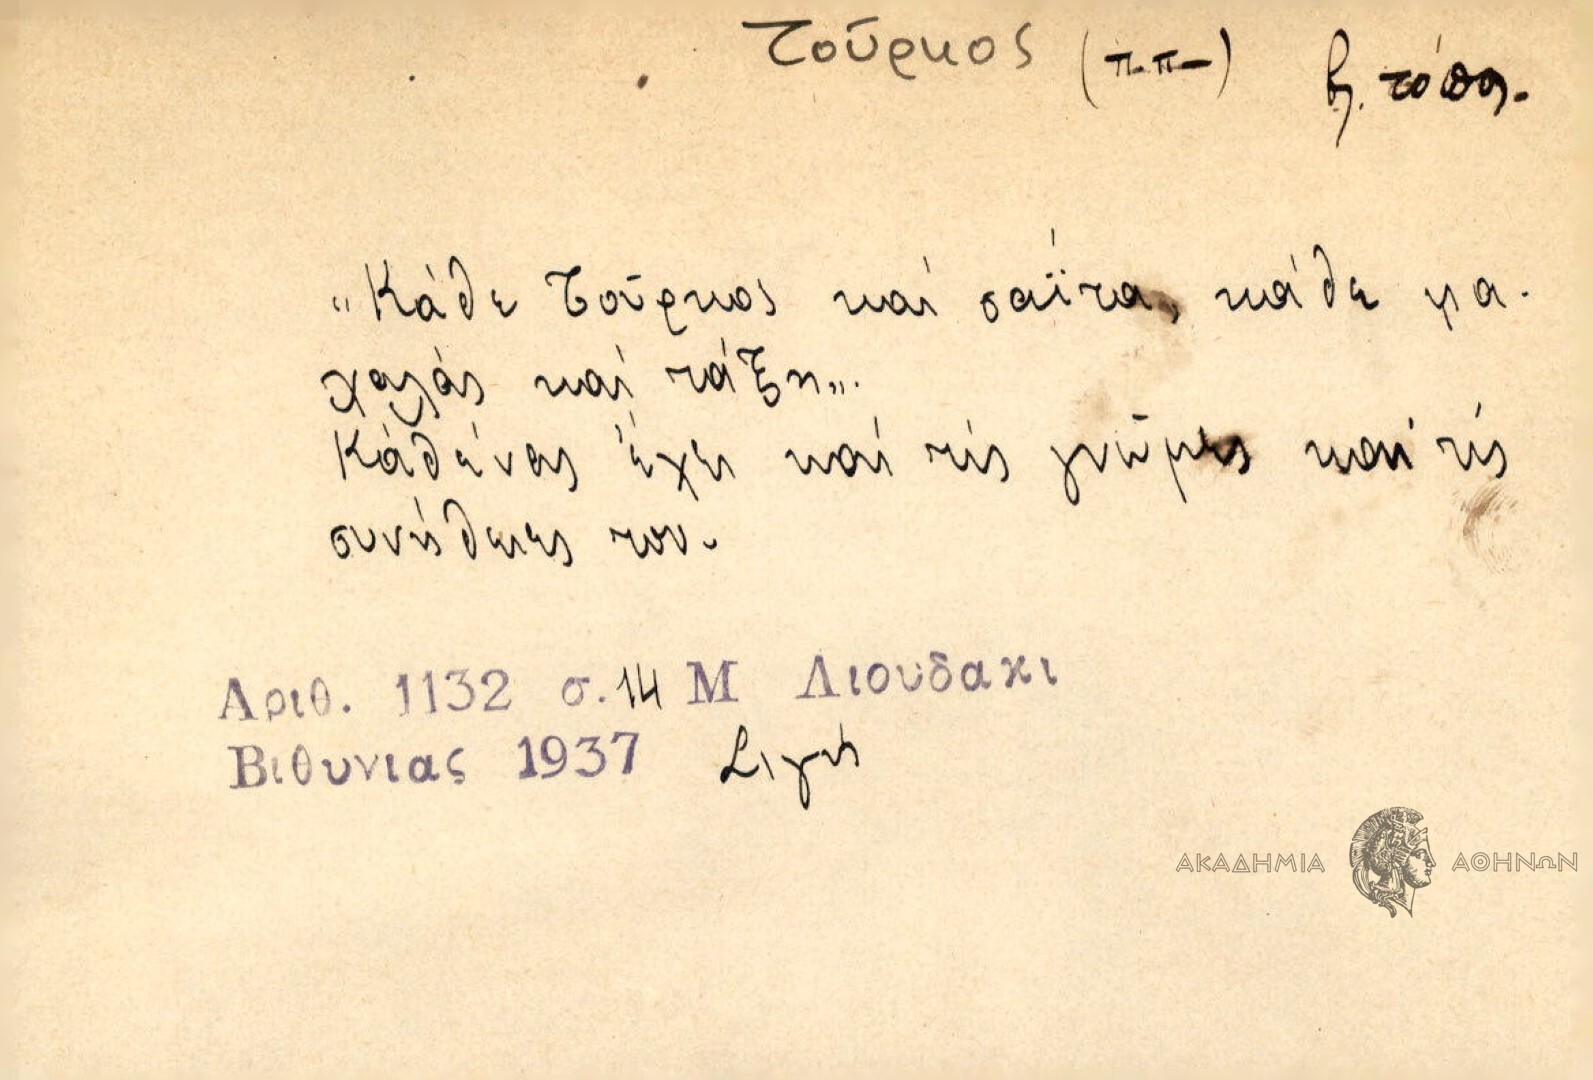 Τοῦρκος (π.π-) βλ. τόπος.
„Κάθε Τοῦρκος καί σαΐτα, κάθε μα-
χαλάς καί τάξη".
Κάθένας ἔχει καί τίς γνῶμες καί τίς
συνήθειες του.
Αριθ. 1132 σ. 14 Μ Λιουδακι
Βιθυνιας 1937 Σιγή
ΑΚΑΔΗΜΙΑ ΑΘΗΝΩΝ